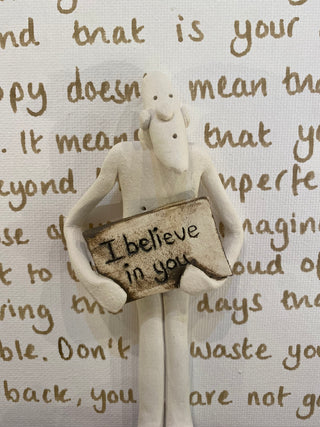 nd that is your
ppy doesn mean tha
. It mean that y
eyond mperfe
se magin
t to oud of
ring th days tha
ble. Don't waste you
back, you are not g
I believe
in you